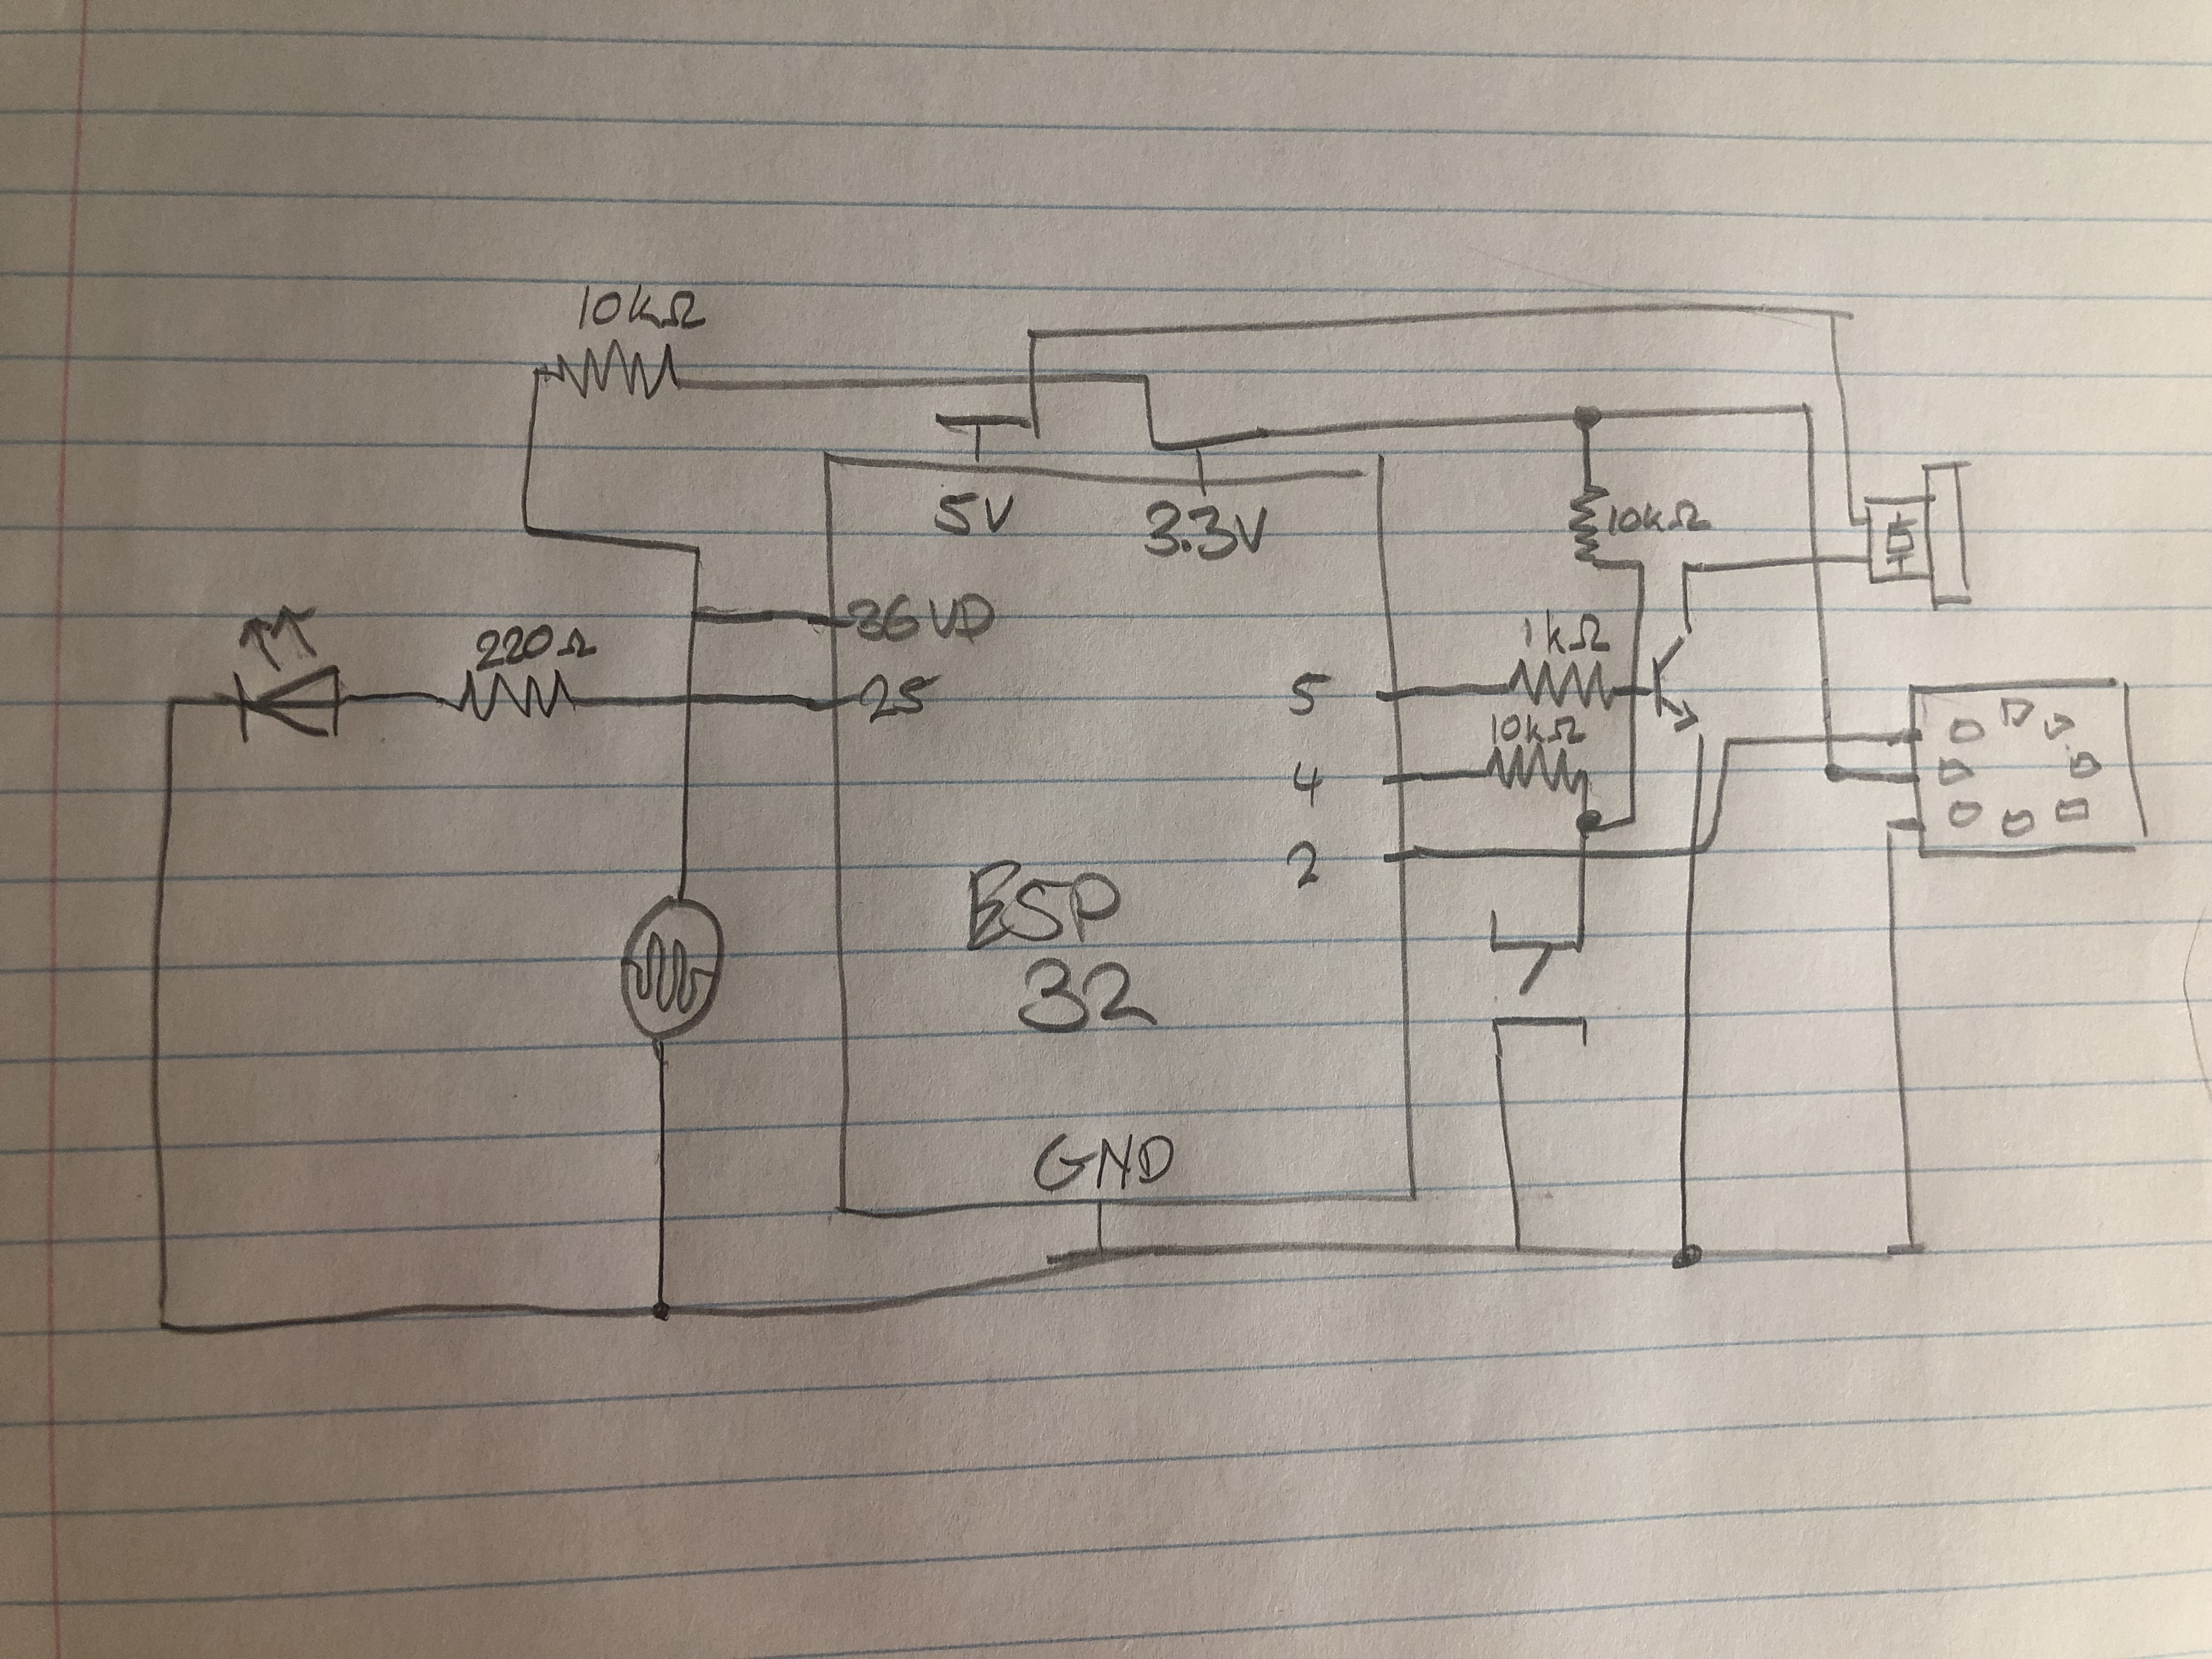 10kΩ
5V
3.3V
10kΩ
36 VD
220Ω
25
1kΩ
5
10kΩ
4
2
ESP
32
GND